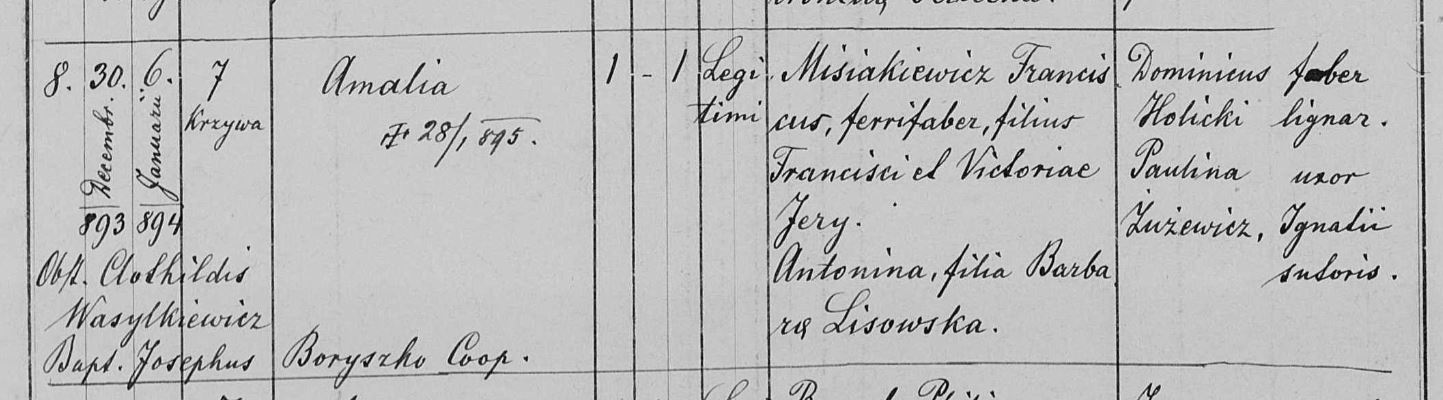 8. 30. Decembr. 893 6. Januarii 894 7 Krzywa Amalia 1 - 1 Legi Misiakiewicz Francis Dominicus faber
timi cus, ferrifaber, filius Holicki lignar.
28/1 895. Francisci et Victoriae Paulina uxor
Jery. Zużewicz, Ignatii
Obst. Clothildis Antonina, filia Barba sutoris.
Wasylkiewicz rą Lisowska.
Bapt. Josephus Boryszko Coop.